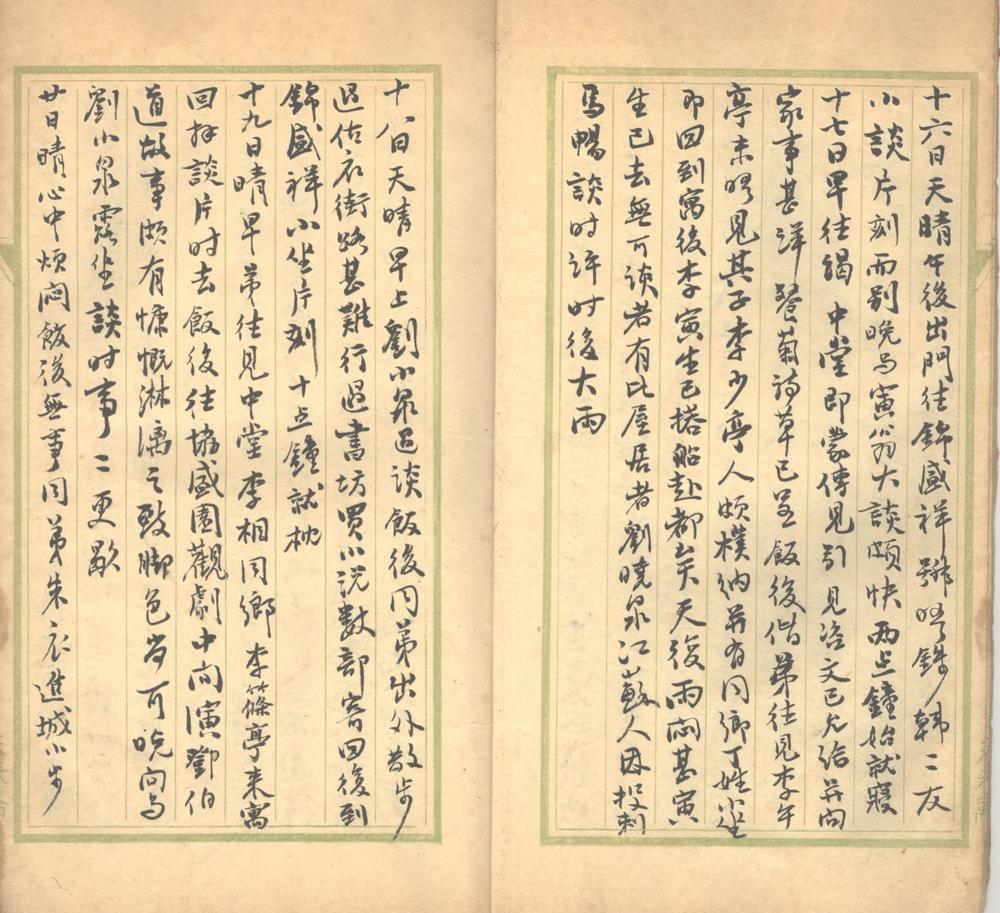 十六日天晴午後出門往錦盛祥號晤錢韓二友
小談片刻而別晚与寅翁大談頗快兩点鐘始就寢
十七日早往謁 中堂即蒙傳見引見咨文已允給并问
家事甚詳餐菊詩草已呈飯後偕弟往見李午
亭未晤見其子李少亭人頗樸納并有同鄉丁姓小坐
即回到寓後李寅生已搭船赴都矣天後雨悶甚寅
生已去無可談者有比屋居者劉曉泉江蘇人因投刺
焉暢談时许时後大雨
十八日天晴早上劉小泉過談飯後同弟出外散步
過估衣街路甚難行過書坊買小说数部寄回後到
錦盛祥小坐片刻十点鐘就枕
十九日晴早弟往見中堂李相同鄉李篠亭来寓
回拜談片时去飯後往協盛園觀劇中间演鄧伯
道故事頗有慷慨淋漓之致脚色尚可晚间与
劉小泉露坐談时事二更歇
廿日晴心中煩悶飯後無事同弟朱衣進城小步